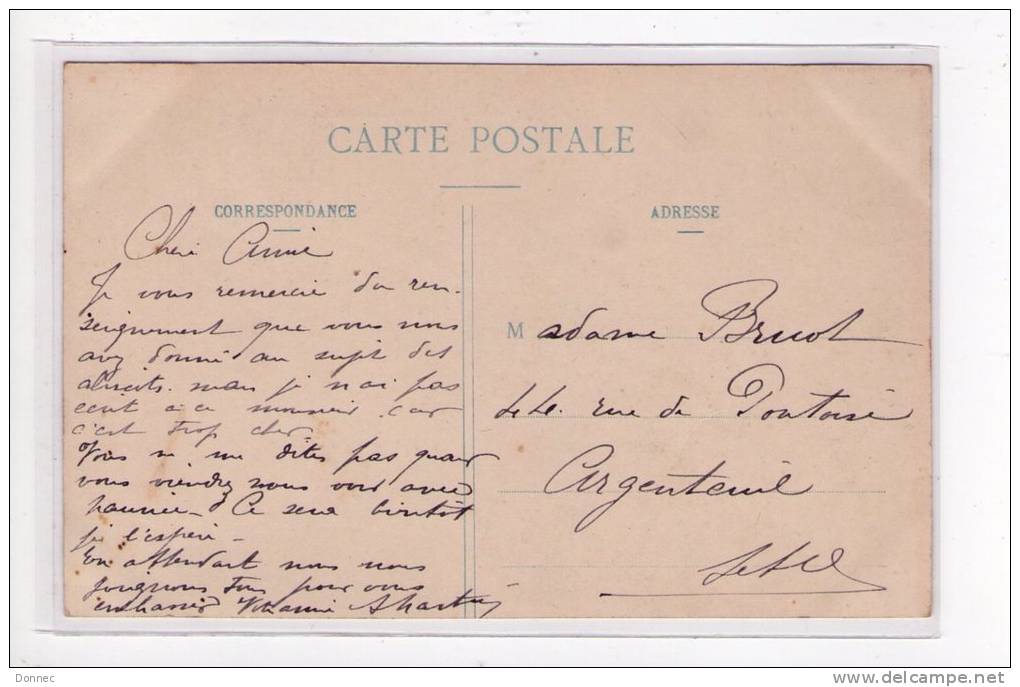 CARTE POSTALE
CORRESPONDANCE
ADRESSE
Chère Amie
Je vous remercie du ren-
seignement que vous nous
avez donné au sujet des
mais je n'ai pas
écrit à ce monsieur car
c'est trop cher
Vous ne me dites pas quand
vous viendrez nous voir avec
Ce sera bientôt
je l'espère -
En attendant nous nous
joignons tous pour vous
embrasser
Madame Bruot
44. rue de Pontoise
Argenteuil
S et O
Donnec
delcampe.net